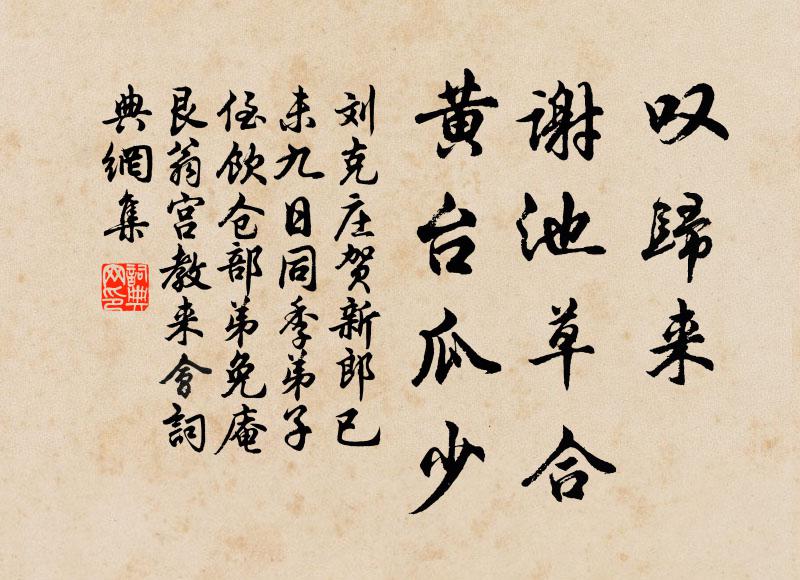 叹歸来
謝池草合
黄台瓜少
刘克庄贺新郎已
未九日同季弟子
侄飲仓部弟免庵
艮翁宫教来會詞
典網集
詞典网印